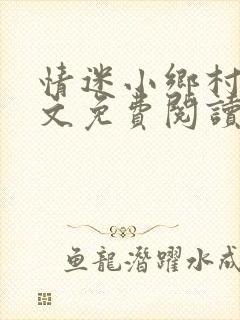 情迷小鄉村
文免費閱讀
鱼龍潛躍水成